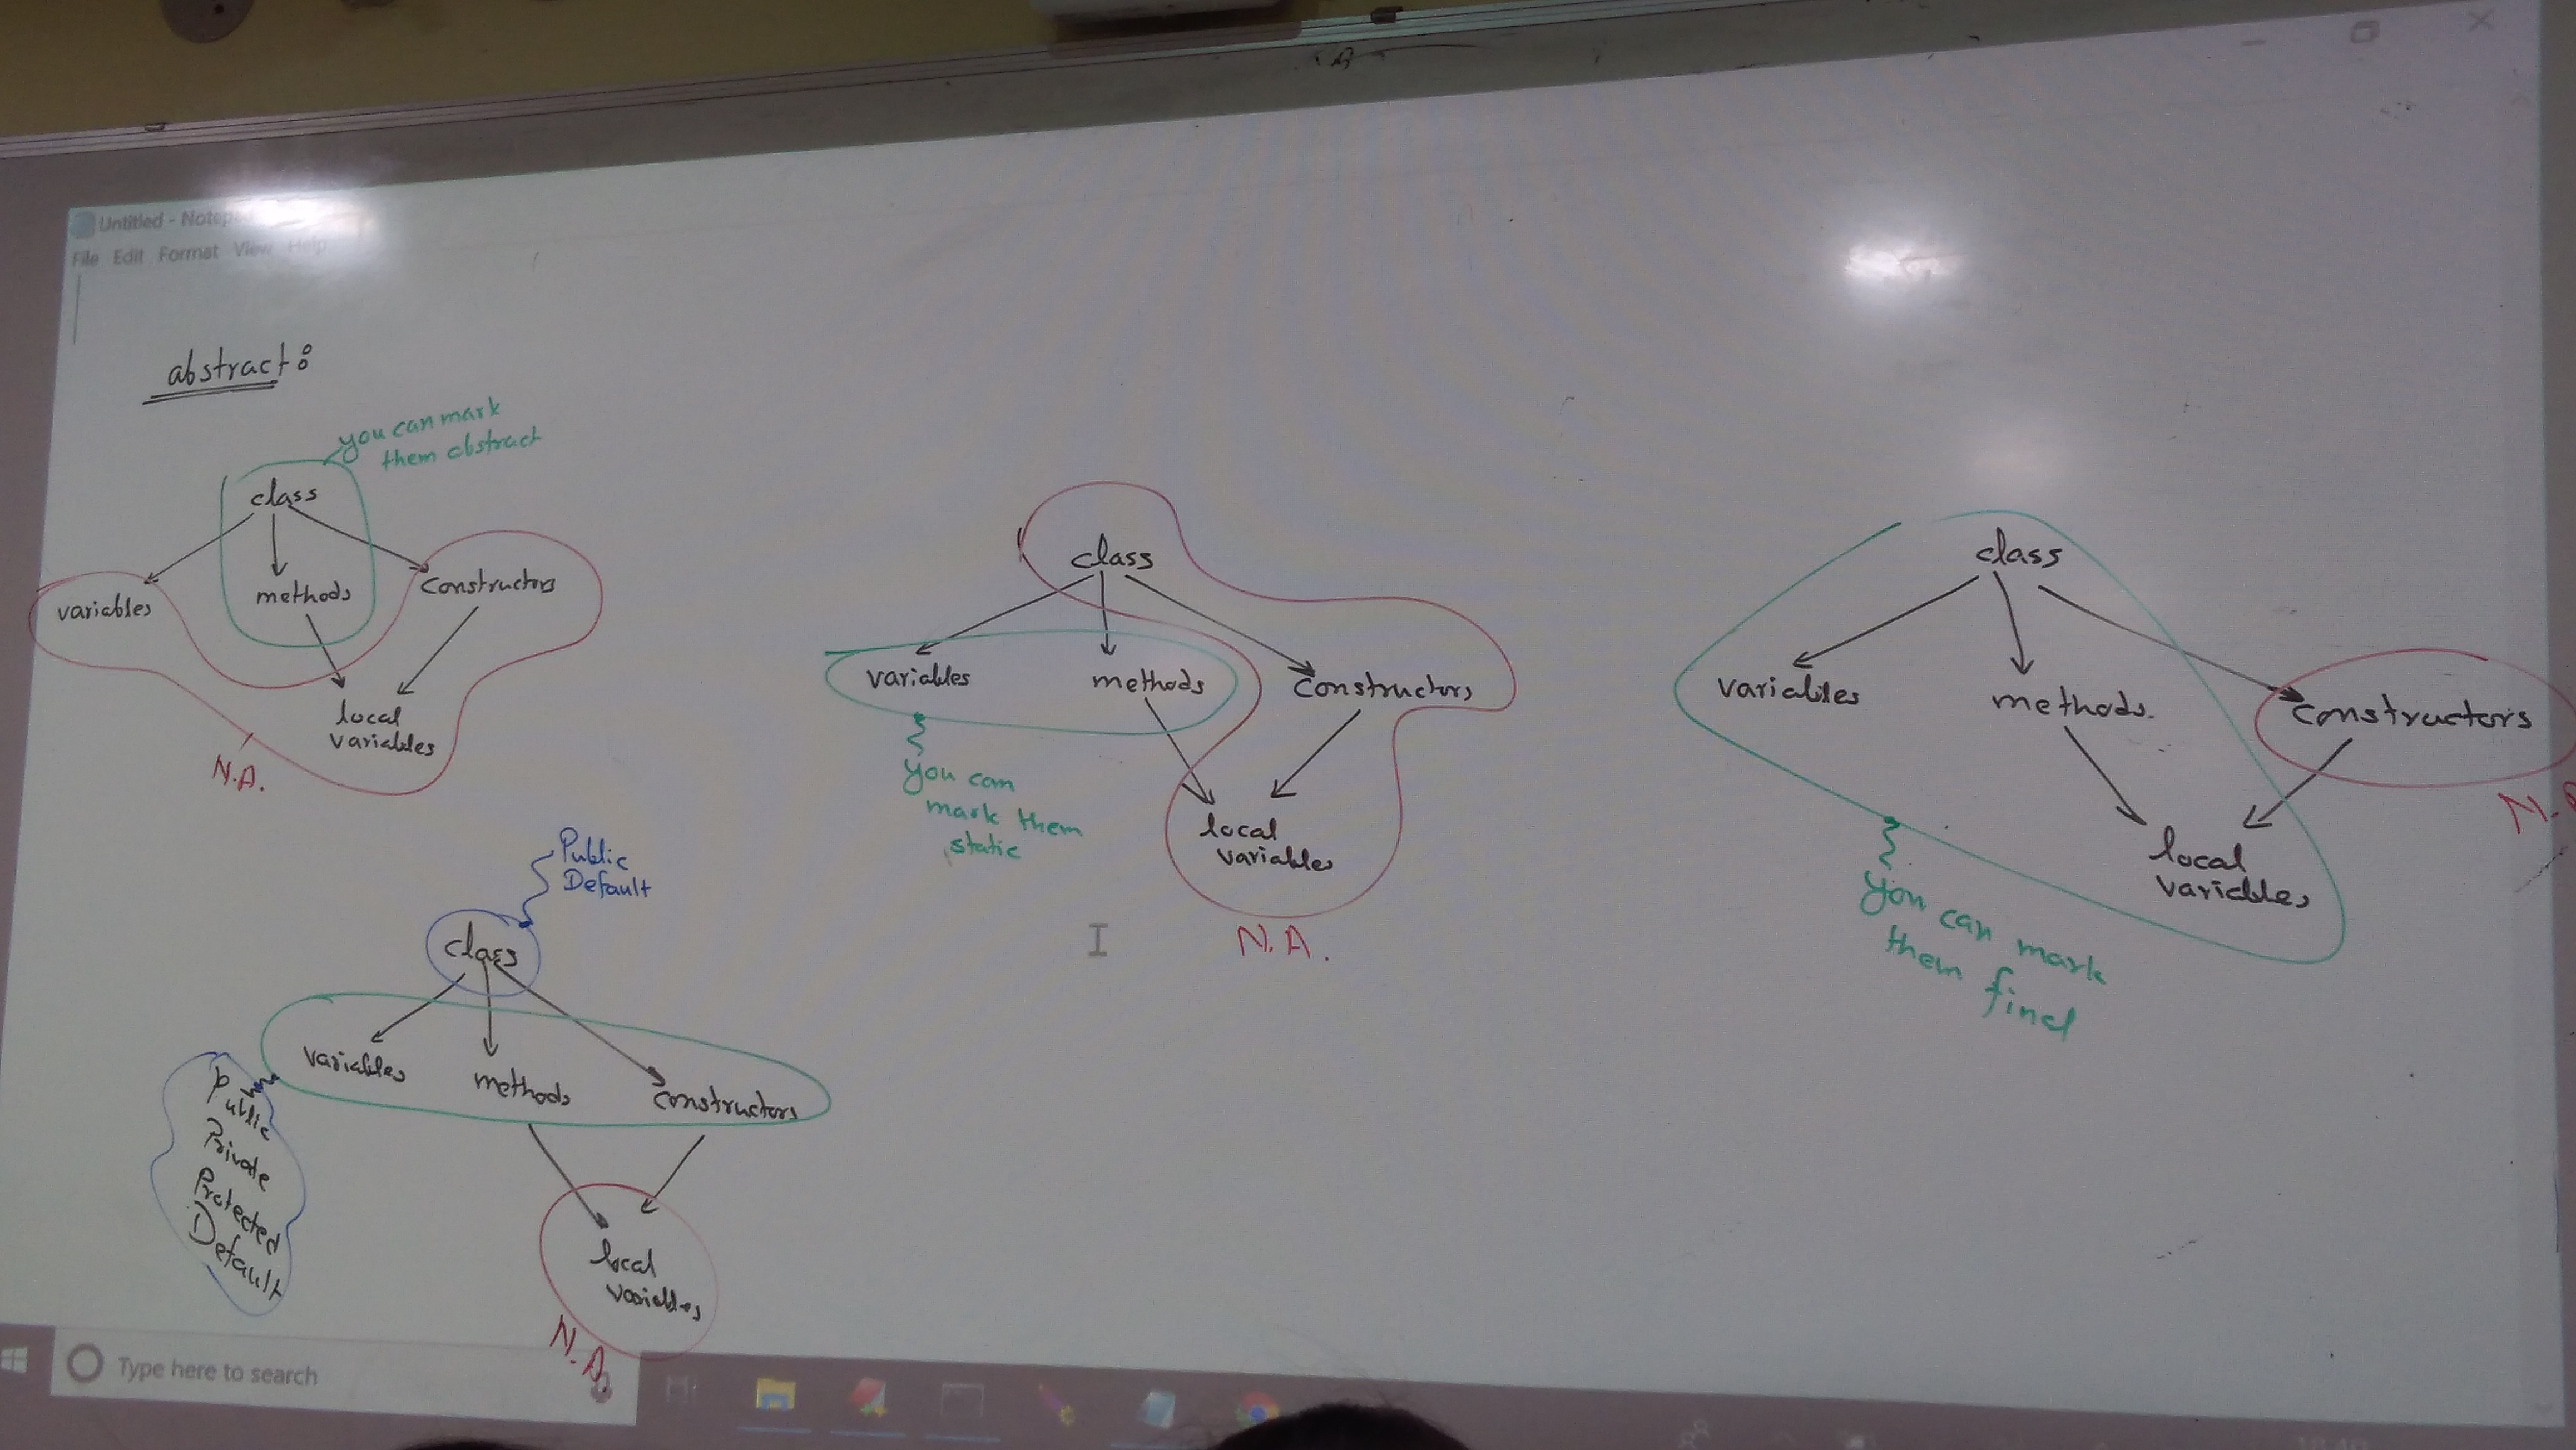 Untitled - Notep
File Edit Format View Help
abstract:
you can mark
them abstract
class
variables methods constructors
local
variables
N.A.
class
variables methods constructors
you can
mark them
static
local
variables
N.A.
class
variables methods. constructors
N.A
local
variables
you can mark
them final
Public
Default
class
variables methods constructors
Public
Private
Protected
Default
local
variables
N.A.
Type here to search